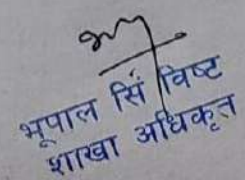 भूपाल सिं विष्ट
शाखा अधिकृत